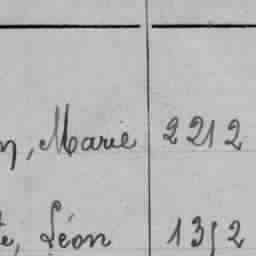 n, Marie 2212
te, Léon 1352